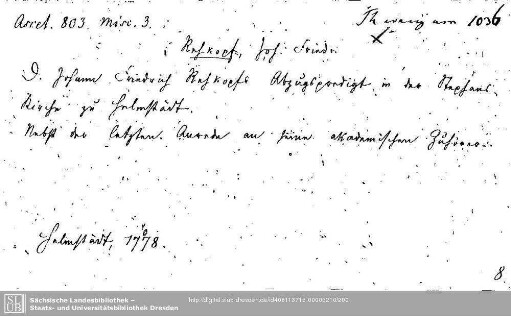 Accet. 803. misc. 3.
Th evang um 1036
Rehkopf, Joh. Friedr.
D. Johann Friedrich Rehkopfs Abzugspredigt in der Stephans
Kirche zu Helmstädt.
Nebst der letzten Anrede an seine akademischen Zuhörer.
Helmstädt, 1778.
8
Sächsische Landesbibliothek –
Staats- und Universitätsbibliothek Dresden